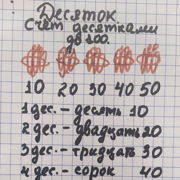 Десяток
Счёт десятками
до 100.
10 20 30 40 50
1 дес. - десять 10
2 дес. - двадцать 20
3 дес. - тридцать 30
4 дес. - сорок 40